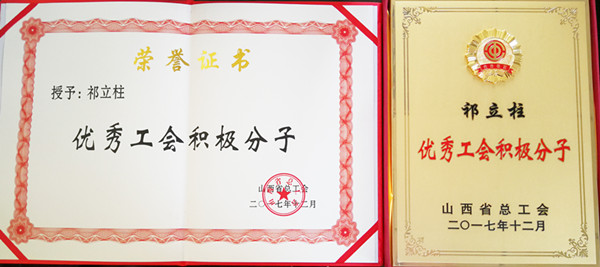 荣誉证书
授予：祁立柱
优秀工会积极分子
山西省总工会
二〇一七年十二月
祁立柱
优秀工会积极分子
山西省总工会
二〇一七年十二月